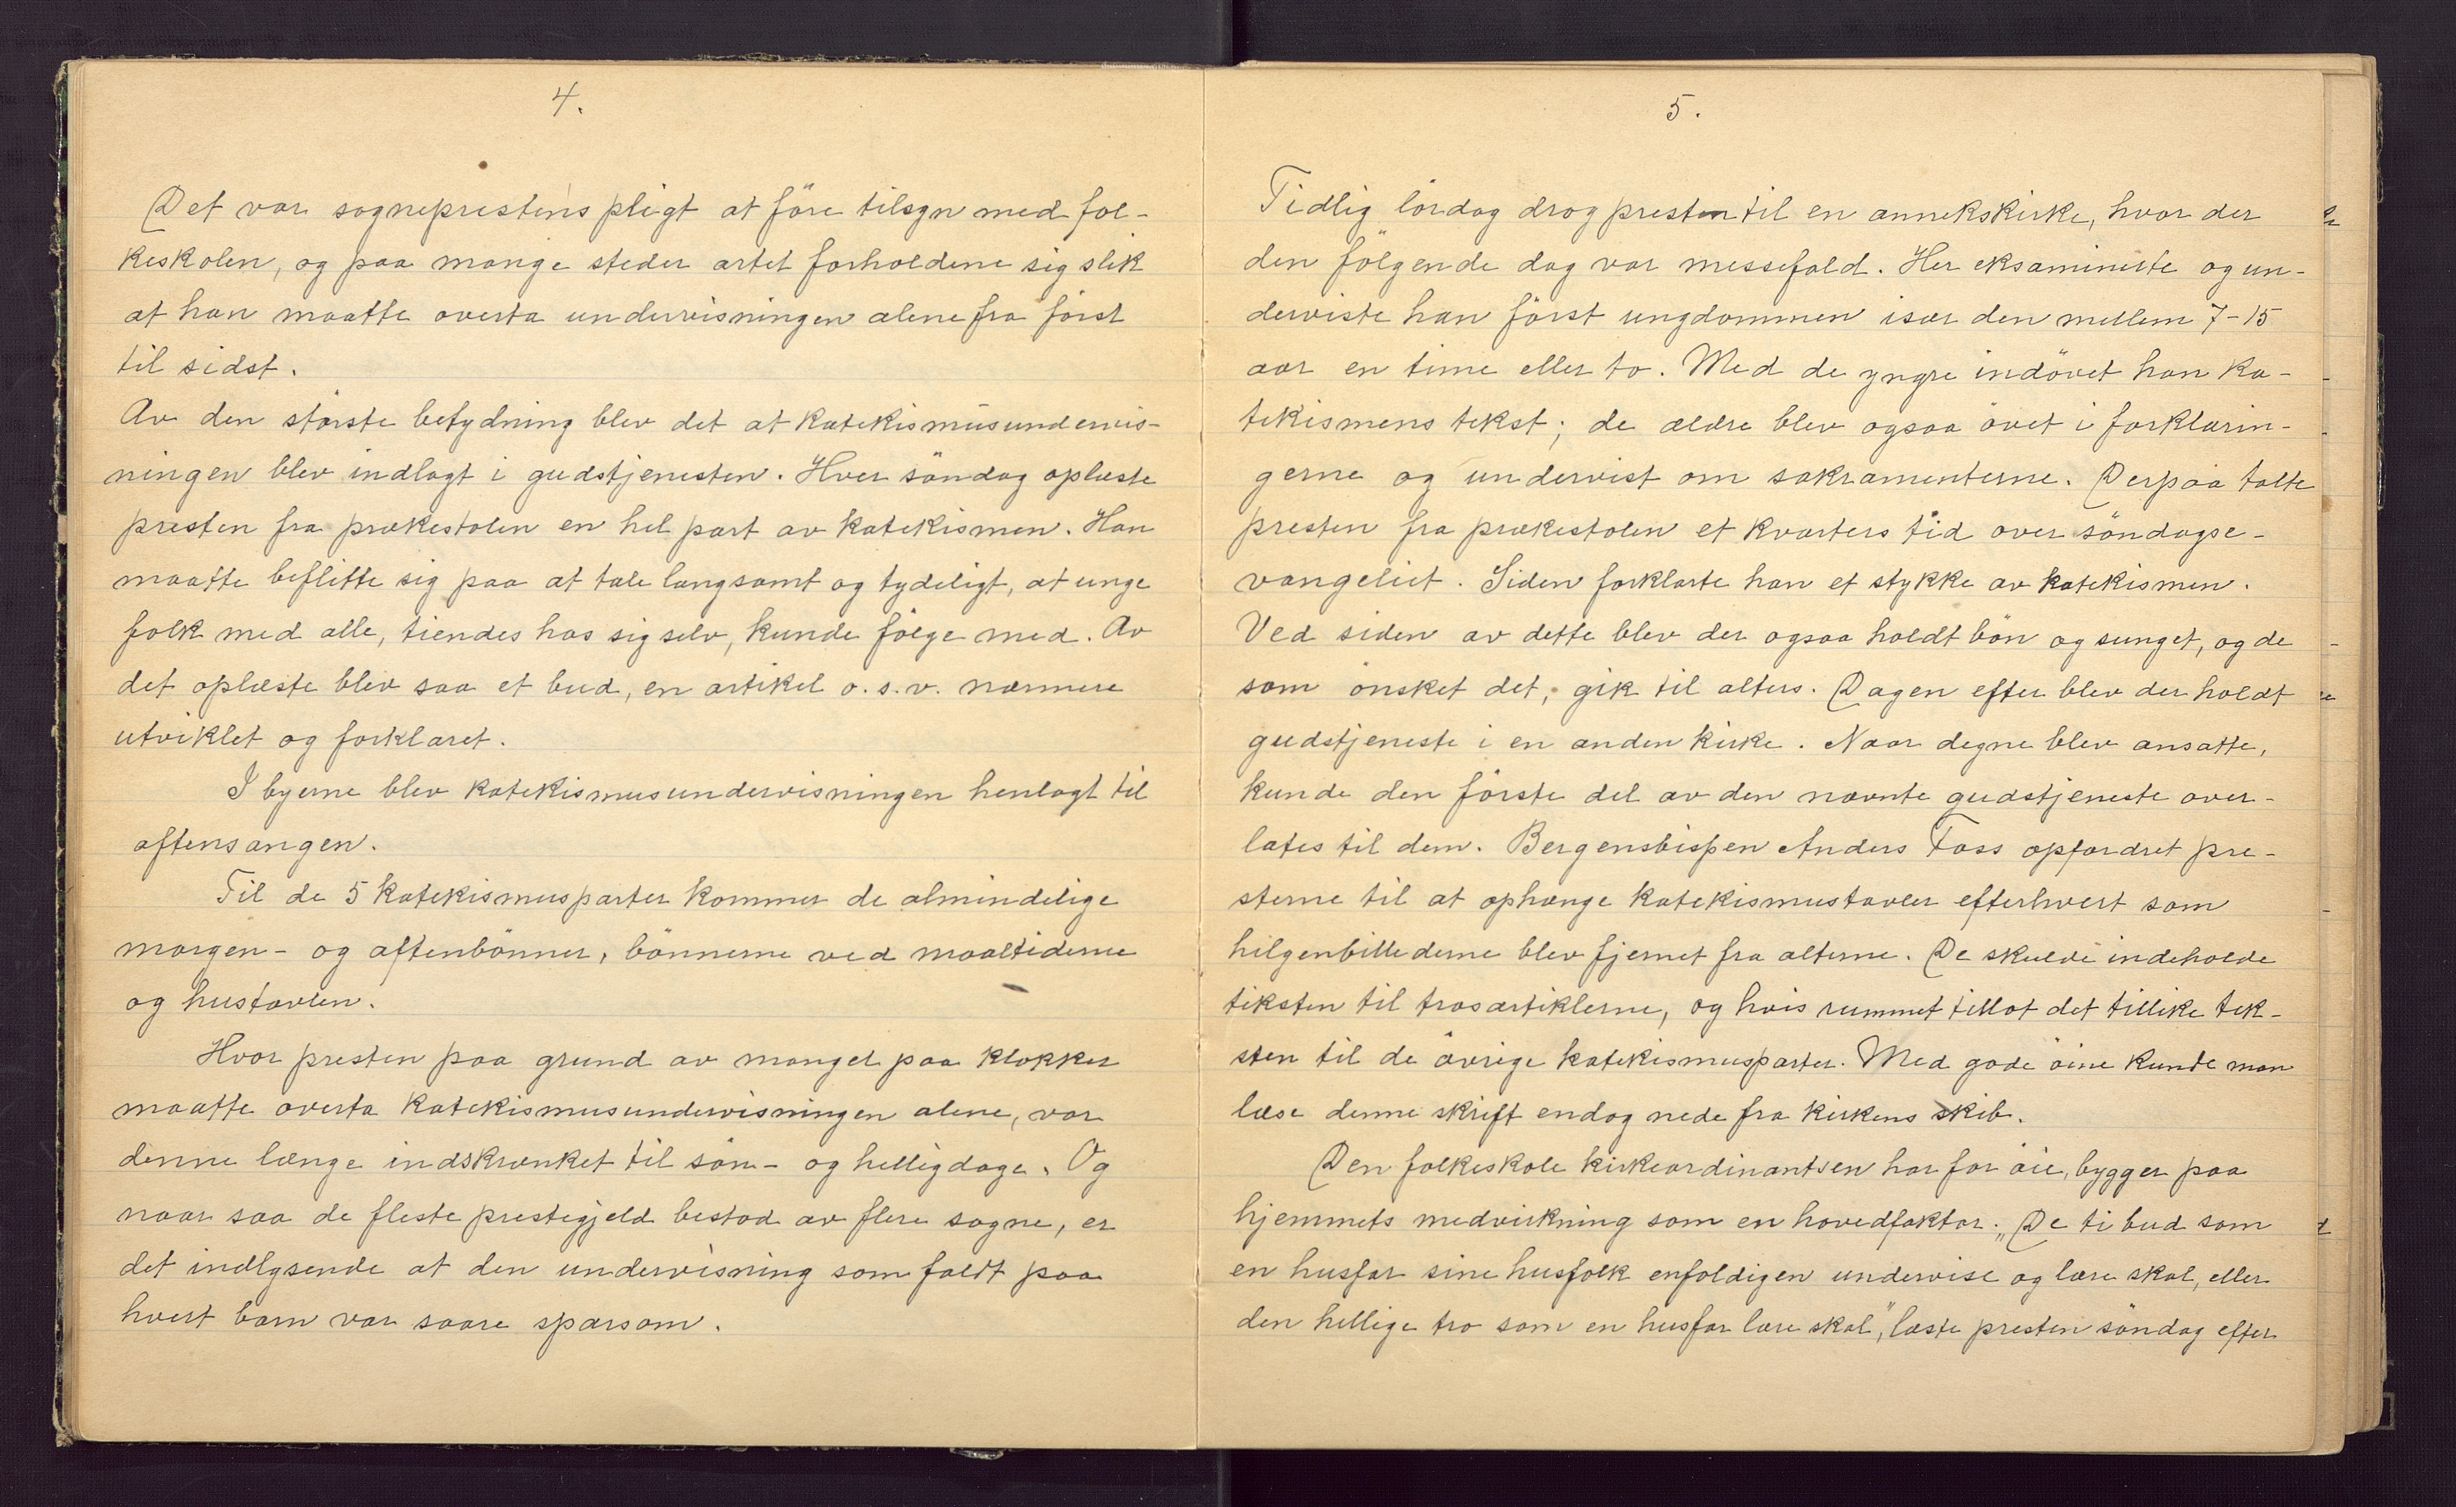 4.
Det var sogneprestens pligt at före tilsyn med fol-
keskolen, og paa mange steder artet forholdene sig slik
at han maatte overta undervisningen alene fra först
til sidst.
Av den störste betydning blev det at katekismusundervis-
ningen blev indlagt i gudstjenesten. Hver söndag oplæste
presten fra prækestolen en hel part av katekismen. Han
maatte beflitte sig paa at tale langsomt og tydeligt, at unge
folk med alle, tiendes hos sig selv, kunde følge med. Av
det oplæste blev saa et bud, en artikel o.s.v. nærmere
utviklet og forklaret.
I byerne blev katekismusundervisningen henlagt til
aftensangen.
Til de 5 katekismusparter kommer de almindelige
morgen- og aftenbönner, bönnerne ved maaltiderne
og hustavlen.
Hvor presten paa grund av mangel paa klokker
maatte overta katekismusundervisningen alene, var
denne længe indskrænket til sön- og helligdage. Og
naar saa de fleste prestegjeld bestod av flere sogne, er
det indlysende at den undervisning som faldt paa
hvert barn var saare sparsom.
5.
Tidlig lördag drog presten til en annekskirke, hvor der
den fölgende dag var messefald. Her eksaminerte og un-
derviste han först ungdommen især den mellem 7-15
aar en time eller to. Med de yngre indövet han ka-
tekismens tekst; de ældre blev ogsaa övet i forklarin-
gerne og undervist om sakramenterne. Derpaa talte
presten fra prækestolen et kvarters tid over söndagse-
vangeliet. Siden forklarte han et stykke av katekismen.
Ved siden av dette blev der ogsaa holdt bön og sunget, og de
som önsket det, gik til alters. Dagen efter blev der holdt
gudstjeneste i en anden kirke. Naar degne blev ansatte,
kunde den förste del av den nævnte gudstjeneste over-
lates til dem. Bergensbispen Anders Foss opfordret pre-
sterne til at ophænge katekismustavler efterhvert som
helgenbillederne blev fjernet fra alterne. De skulde indeholde
teksten til trosartiklerne, og hvis rummet tillot det tillike tek-
sten til de övrige katekismusparter. Med gode öine kunde man
læse denne skrift endog nede fra kirkens skib.
Den folkeskole kirkeordinantsen har for öie, bygger paa
hjemmets medvirkning som en hovedfaktor. „De ti bud som
en husfar sine husfolk enfoldigen undervise og lære skal, eller
den hellige tro som en husfar lære skal", læste presten söndag efter